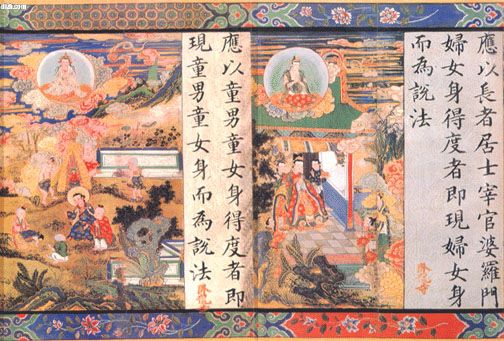 應以長者居士宰官婆羅門
婦女身得度者即現婦女身
而為說法
應以童男童女身得度者即
現童男童女身而為說法